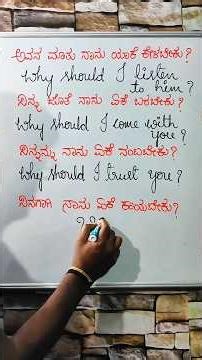 ಅವನ ಮಾತು ನಾನು ಯಾಕೆ ಕೇಳಬೇಕು?
Why should I listen
to him?
ನಿನ್ನ ಜೊತೆ ನಾನು ಏಕೆ ಬರಬೇಕು?
Why should I come with
you?
ನಿನ್ನನ್ನು ನಾನು ಏಕೆ ನಂಬಬೇಕು?
Why should I trust you?
ನಿನಗಾಗಿ ನಾನು ಏಕೆ ಕಾಯಬೇಕು?
???